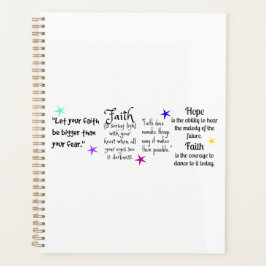 "Let your faith
be bigger than
your fear."
Faith
is seeing light
with your
heart when all
your eyes see
is darkness.
"Faith does
not make things
easy it makes
them possible."
Hope
is the ability to hear
the melody of the
future.
Faith
is the courage to
dance to it today.